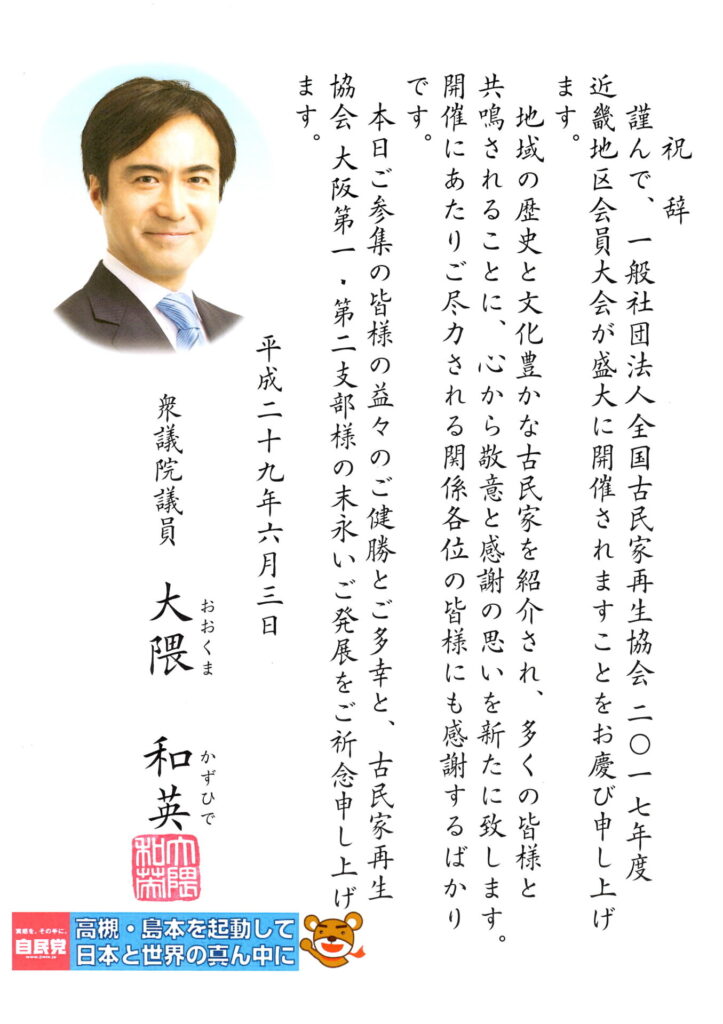 祝辞
謹んで、一般社団法人全国古民家再生協会 二〇一七年度
近畿地区会員大会が盛大に開催されますことをお慶び申し上げ
ます。
地域の歴史と文化豊かな古民家を紹介され、多くの皆様と
共鳴されることに、心から敬意と感謝の思いを新たに致します。
開催にあたりご尽力される関係各位の皆様にも感謝するばかり
です。
本日ご参集の皆様の益々のご健勝とご多幸と、古民家再生
協会 大阪第一・第二支部様の末永いご発展をご祈念申し上げ
ます。
平成二十九年六月三日
衆議院議員 大隈 和英
おおくま かずひで
大隈
和英
実感を、その手に。
自民党
www.jimin.jp
高槻・島本を起動して
日本と世界の真ん中に